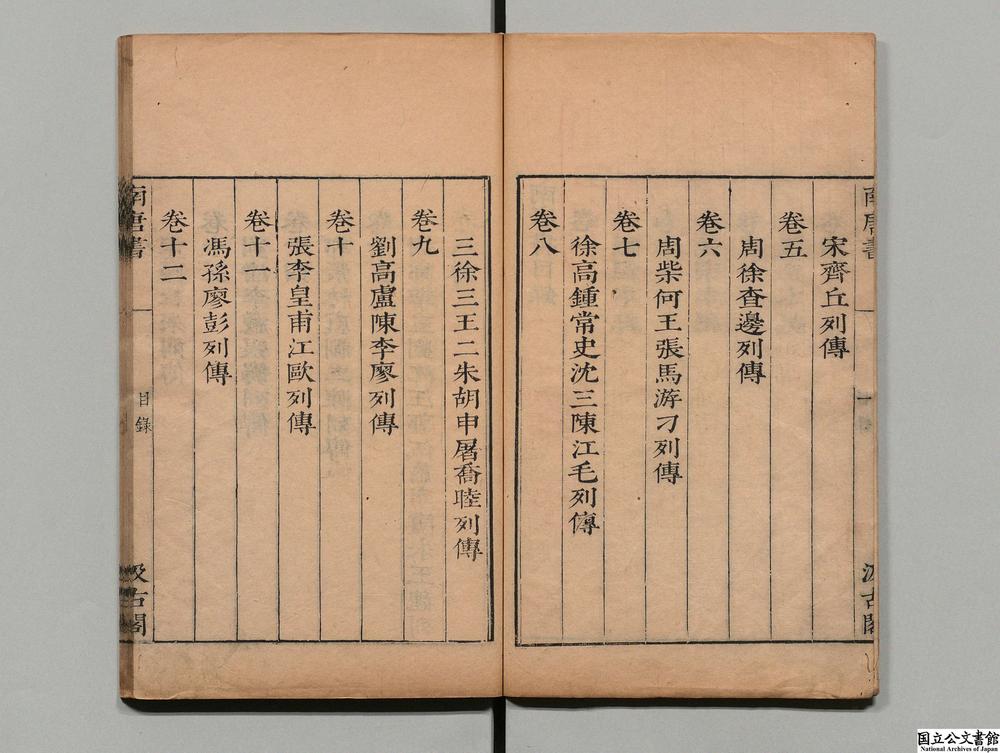 南唐書
一
汲古閣
宋齊丘列傳
卷五
周徐查邊列傳
卷六
周柴何王張馬游刁列傳
卷七
徐高鍾常史沈三陳江毛列傳
卷八
三徐三王二朱胡申屠喬睦列傳
卷九
劉高盧陳李廖列傳
卷十
張李皇甫江歐列傳
卷十一
馮孫廖彭列傳
卷十二
南唐書
目錄
汲古閣
国立公文書館
National Archives of Japan